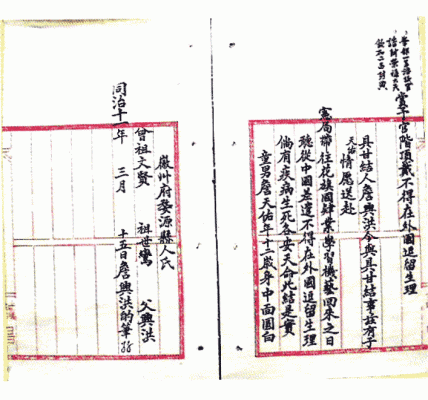 賞予官階頂戴不得在外國逗留生理
具甘結人詹興洪今與具甘結事茲有子
天佑情愿送赴
憲局帶往花旗國肄業學習機藝回來之日
聽從中國差遣不得在外國逗留生理
倘有疾病生死各安天命此結是實
童男詹天佑年十二歲身中面圓白
徽州府婺源縣人氏
曾祖文賢 祖世鸞 父興洪
同治十一年 三月 十五日詹興洪的筆